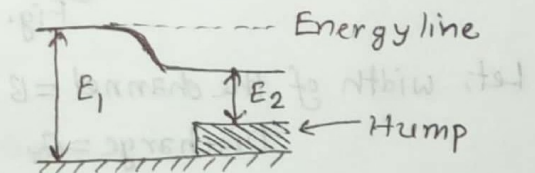 Energy line
E₁
E₂
Hump